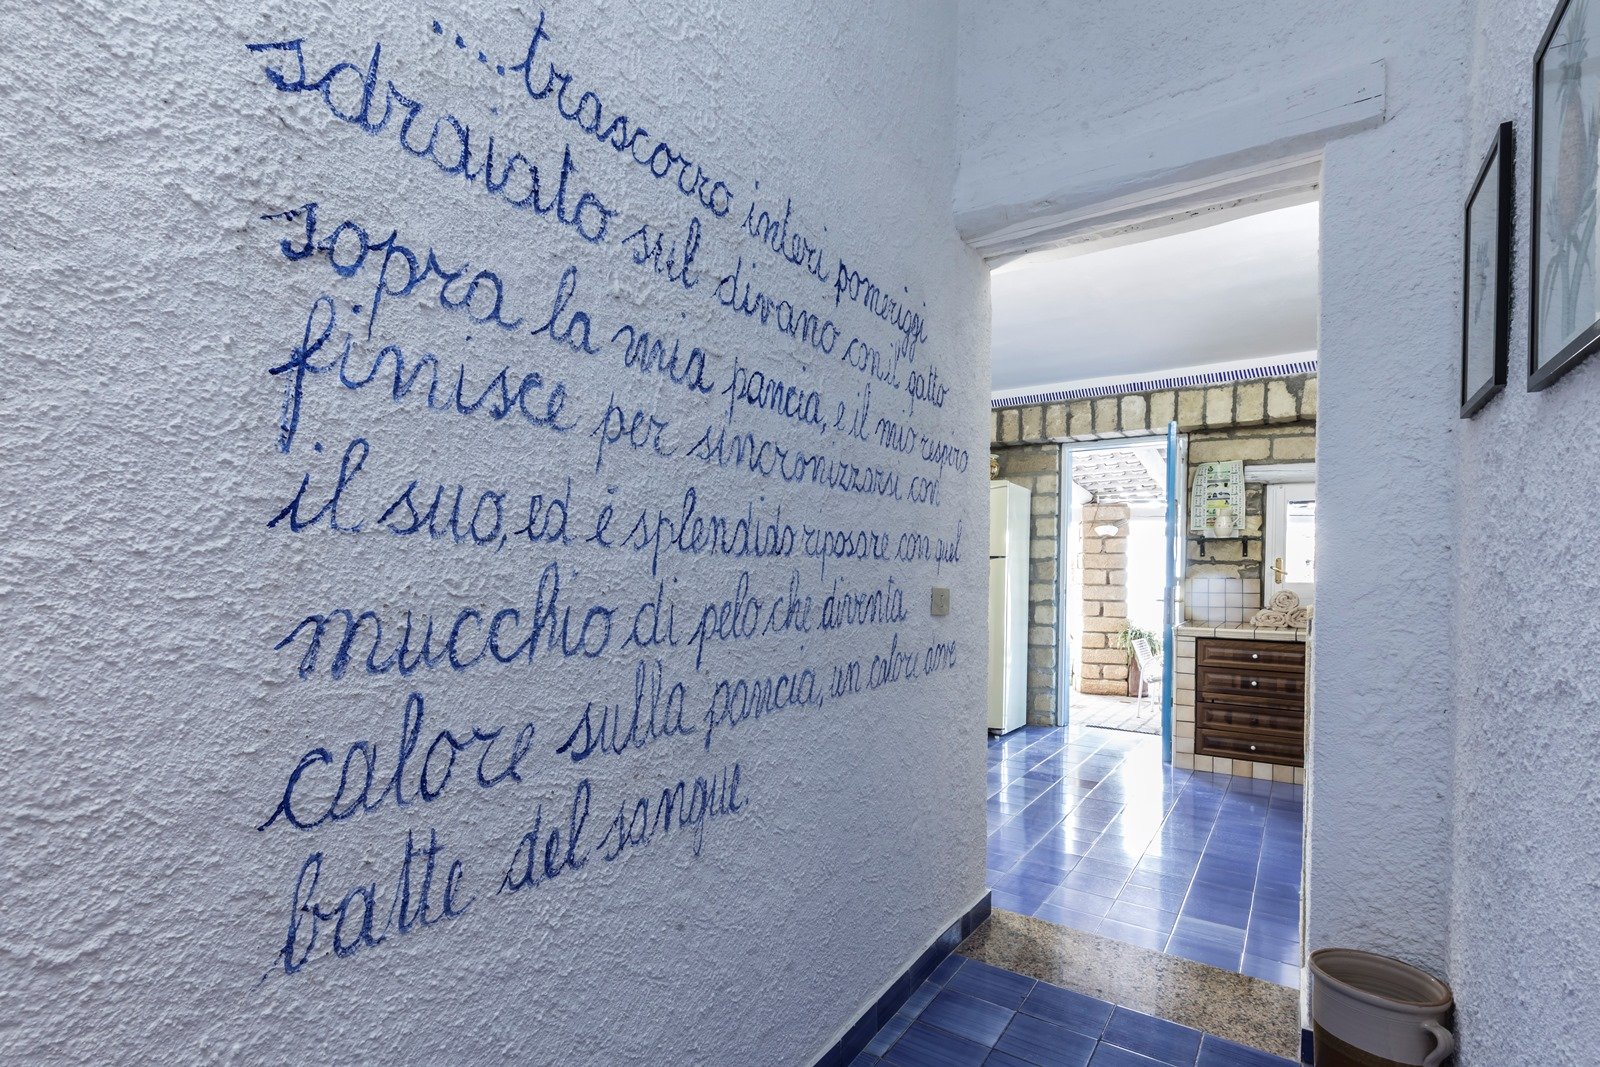 ...trascorro interi pomeriggi
sdraiato sul divano con il gatto
sopra la mia pancia, e il mio respiro
finisce per sincronizzarsi con
il suo, ed è splendido riposare con quel
mucchio di pelo che diventa
calore sulla pancia, un calore dove
batte del sangue.